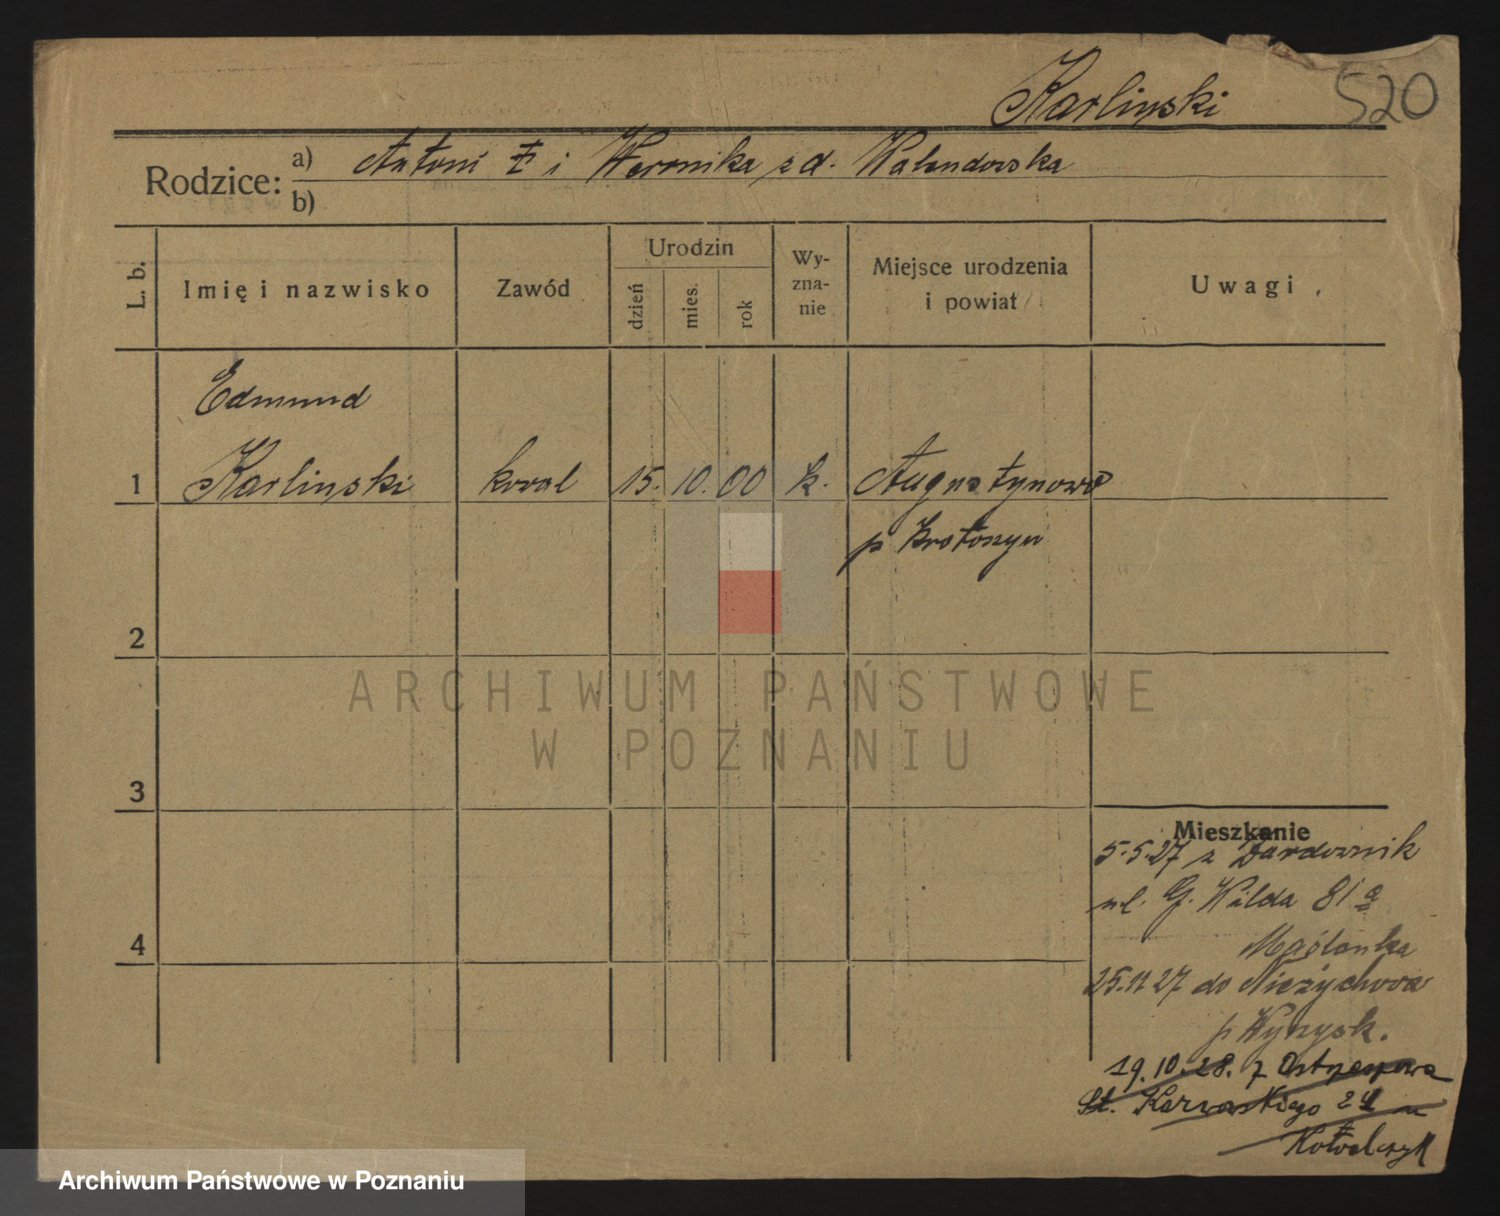 Karlinski 520
Rodzice: a) Antoni i Weronika z d. Walendowska
b)
L. b. Imię i nazwisko Zawód Urodzin dzień mies. rok Wyznanie Miejsce urodzenia i powiat Uwagi
Edmund
1 Karlinski kowal 15. 10. 00 k. Augustynowo
p Krotoszyn
2
ARCHIWUM PAŃSTWOWE
W POZNANIU
3
Mieszkanie
5.5.27 z
ul. G. Wilda 81a
4
25.11.27 do Nieżychowa
p Wyrzysk.
19.10.28. z
24 m
Kowalczyk
Archiwum Państwowe w Poznaniu